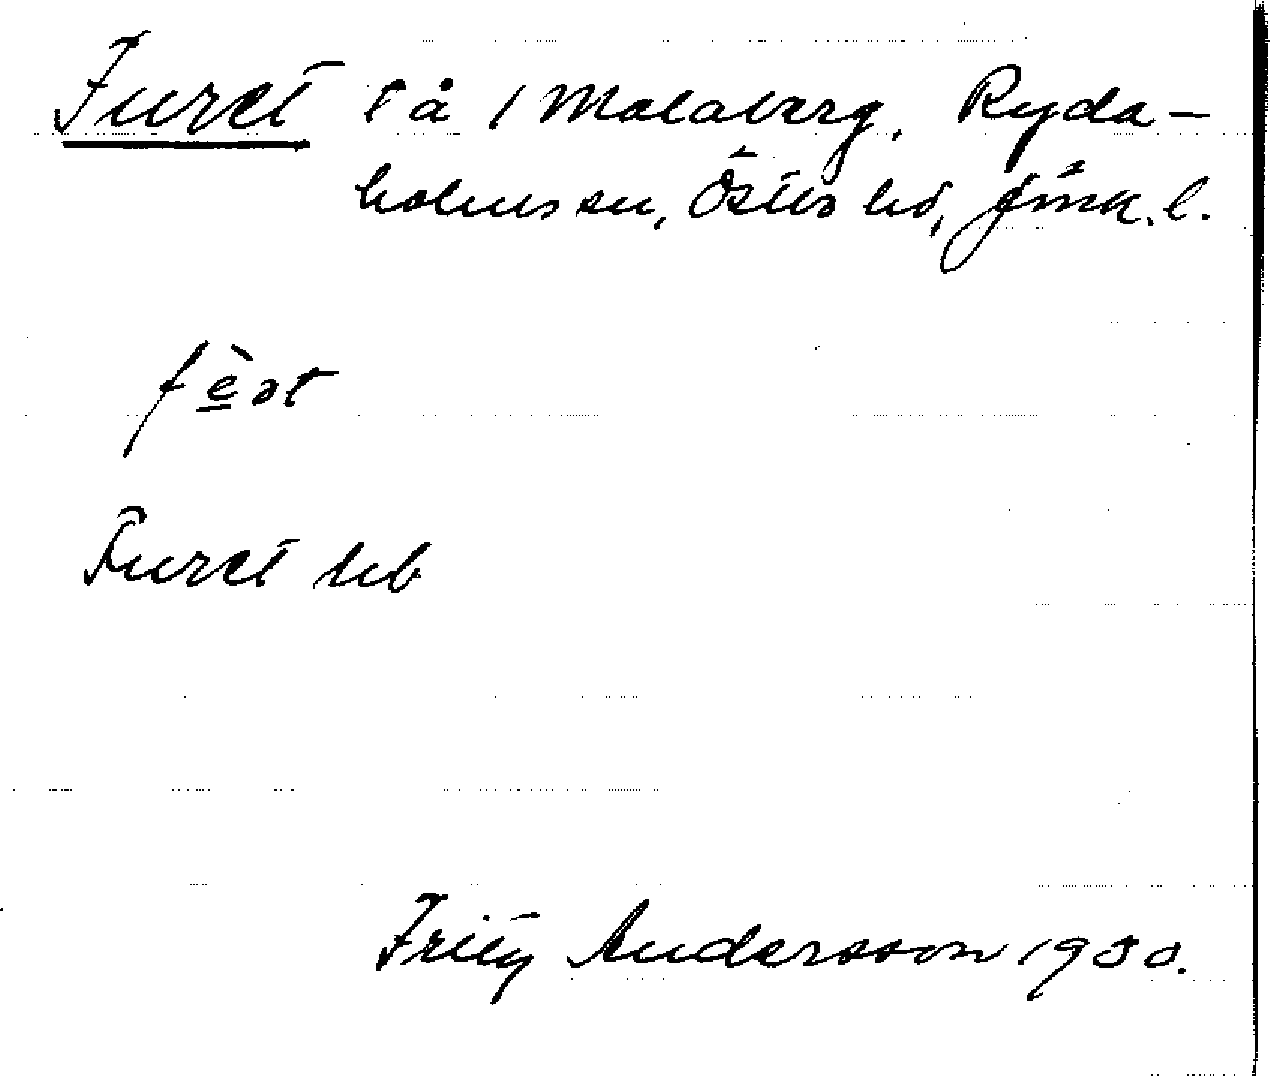 Furet få / Malaberg, Ryda-
holms sn, Östbo hd, Jönk. l.
Furet
Fritz Andersson 1930.